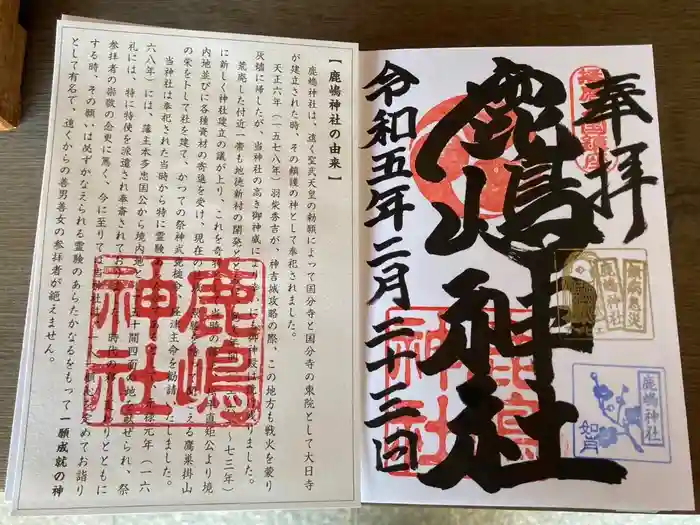 奉拝
鹿嶋神社
令和五年二月二十三日
鹿嶋神社
鹿嶋神社
鹿嶋神社
如月
【 鹿嶋神社の由来 】
鹿嶋神社は、遠く聖武天皇の勅願によって国分寺と国分寺の東院として大日寺
が建立された時、その鎮護の神として奉祀されました。
天正六年(一五七八年)羽柴秀吉が、神吉城攻略の際、この地方も戦火を蒙り
灰燼に帰したが、当神社の高き御神威によ
に新しく神社建立の議が上り、これを奇
荒廃した付近一帯も地徳新村の開発
内地並びに各種資材の寄進を受け、現在の
の栄をトして社を建て、かつての祭神武甕槌命、経津主命を勧請
当神社は奉祀された当時から特に霊験
六八年)には、藩主本多忠国公から境内地と
礼には、特に特使を派遣され奉斎されて
参拝者の崇敬の念更に篤く、今に至りては当神社は
する時、その願いは必ずかなえられる霊験のあらたかなるをもって一願成就の神
として有名で、遠くからの善男善女の参拝者が絶えません。
鹿嶋神社